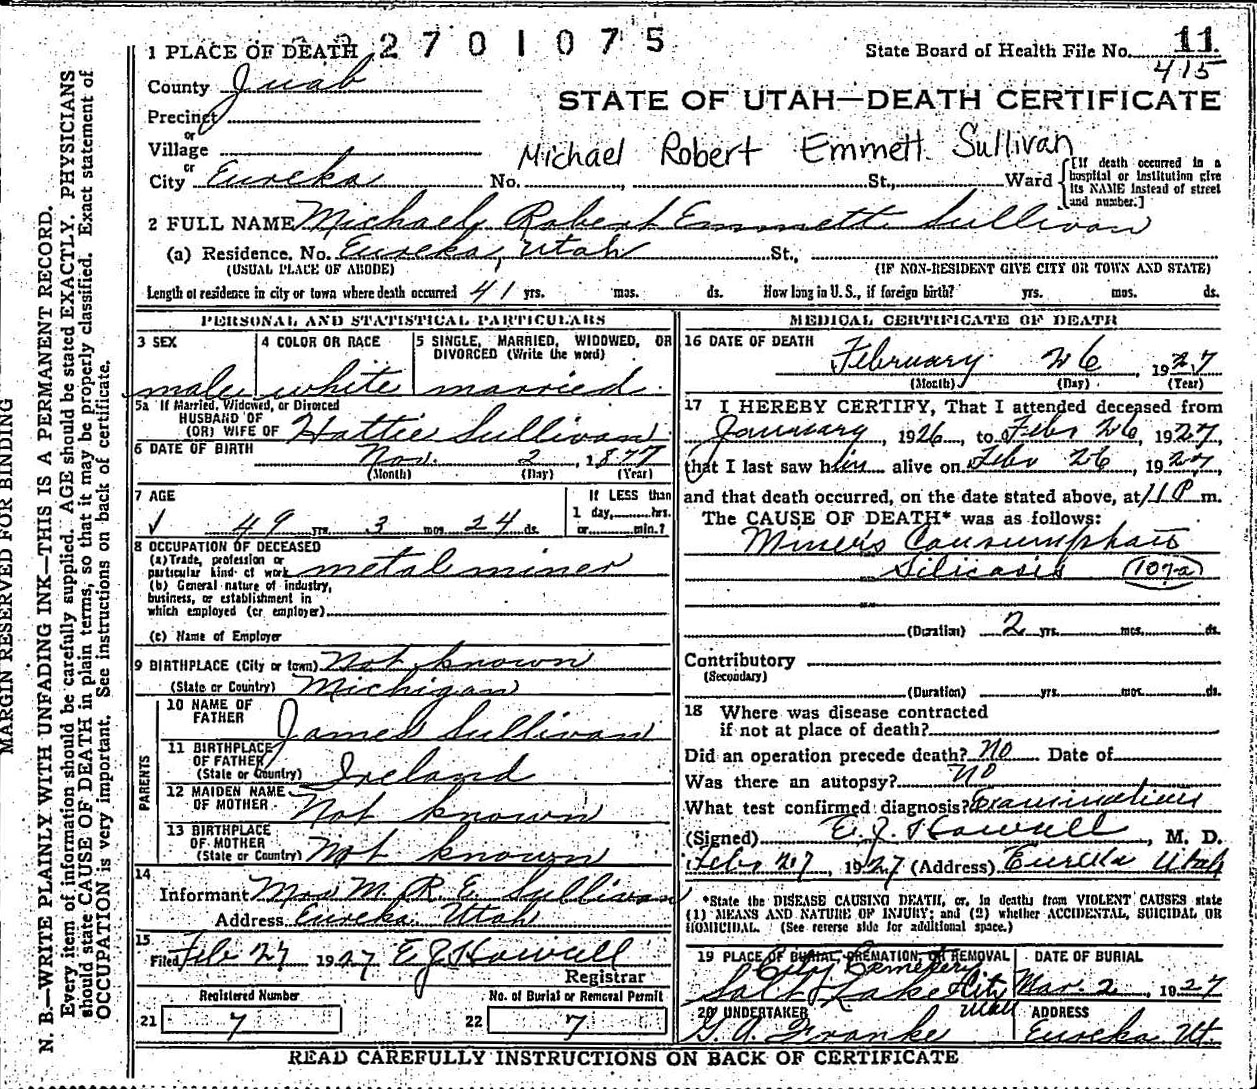 1 PLACE OF DEATH 2 2 7 0 1 0 7 5 State Board of Health File No. 11
415
County Juab
STATE OF UTAH—DEATH CERTIFICATE
Precinct
or
Village
Michael Robert Emmett Sullivan
or
City Eureka No. , St., Ward
[If death occurred in a hospital or institution give its NAME instead of street and number.]
2 FULL NAME Michael Robert Emmett Sullivan
(a) Residence. No. Eureka, Utah St.,
(USUAL PLACE OF ABODE) (IF NON-RESIDENT GIVE CITY OR TOWN AND STATE)
Length of residence in city or town where death occurred 41 yrs. mos. ds. How long in U.S., if foreign birth? yrs. mos. ds.
PERSONAL AND STATISTICAL PARTICULARS
3 SEX 4 COLOR OR RACE 5 SINGLE, MARRIED, WIDOWED, OR
DIVORCED (Write the word)
male white married
5a If Married, Widowed, or Divorced
HUSBAND OF
(OR) WIFE OF Hattie Sullivan
6 DATE OF BIRTH Nov. 2, 1877
(Month) (Day) (Year)
7 AGE If LESS than
1 day, hrs.
49 yrs. 3 mos. 24 ds. or min.?
8 OCCUPATION OF DECEASED
(a) Trade, profession or
particular kind of work metal miner
(b) General nature of industry,
business, or establishment in
which employed (or employer)
(c) Name of Employer
9 BIRTHPLACE (City or town) Not known
(State or Country) Michigan
PARENTS
10 NAME OF
FATHER James Sullivan
11 BIRTHPLACE
OF FATHER
(State or Country) Ireland
12 MAIDEN NAME
OF MOTHER Not known
13 BIRTHPLACE
OF MOTHER
(State or Country) Not known
14
Informant Mrs M. R. E. Sullivan
Address Eureka Utah
15
Filed Feb 27 1927 E J Howell
Registrar
Registered Number No. of Burial or Removal Permit
21 7 22 7
MEDICAL CERTIFICATE OF DEATH
16 DATE OF DEATH
February 26, 1927
(Month) (Day) (Year)
17 I HEREBY CERTIFY, That I attended deceased from
January, 1926, to Feb 26, 1927,
that I last saw him alive on Feb 26, 1927,
and that death occurred, on the date stated above, at 11 P m.
The CAUSE OF DEATH* was as follows:
Miners Consumption
Silicasis 107a
(Duration) 2 yrs. mos. ds.
Contributory
(Secondary)
(Duration) yrs. mos. ds.
18 Where was disease contracted
if not at place of death?
Did an operation precede death? No Date of
Was there an autopsy? no
What test confirmed diagnosis? Examination
(Signed) E. J. Howell, M. D.
Feb 27, 1927 (Address) Eureka Utah
*State the DISEASE CAUSING DEATH, or, in deaths from VIOLENT CAUSES state
(1) MEANS AND NATURE OF INJURY; and (2) whether ACCIDENTAL, SUICIDAL OR
HOMICIDAL. (See reverse side for additional space.)
19 PLACE OF BURIAL, CREMATION, OR REMOVAL DATE OF BURIAL
City Cemetery
Salt Lake City Mar. 2, 1927
Utah
20 UNDERTAKER ADDRESS
G. A. Franke Eureka Ut.
READ CAREFULLY INSTRUCTIONS ON BACK OF CERTIFICATE
MARGIN RESERVED FOR BINDING
N. B.—WRITE PLAINLY WITH UNFADING INK—THIS IS A PERMANENT RECORD.
Every item of information should be carefully supplied. AGE should be stated EXACTLY. PHYSICIANS
should state CAUSE OF DEATH in plain terms, so that it may be properly classified. Exact statement of
OCCUPATION is very important. See instructions on back of certificate.